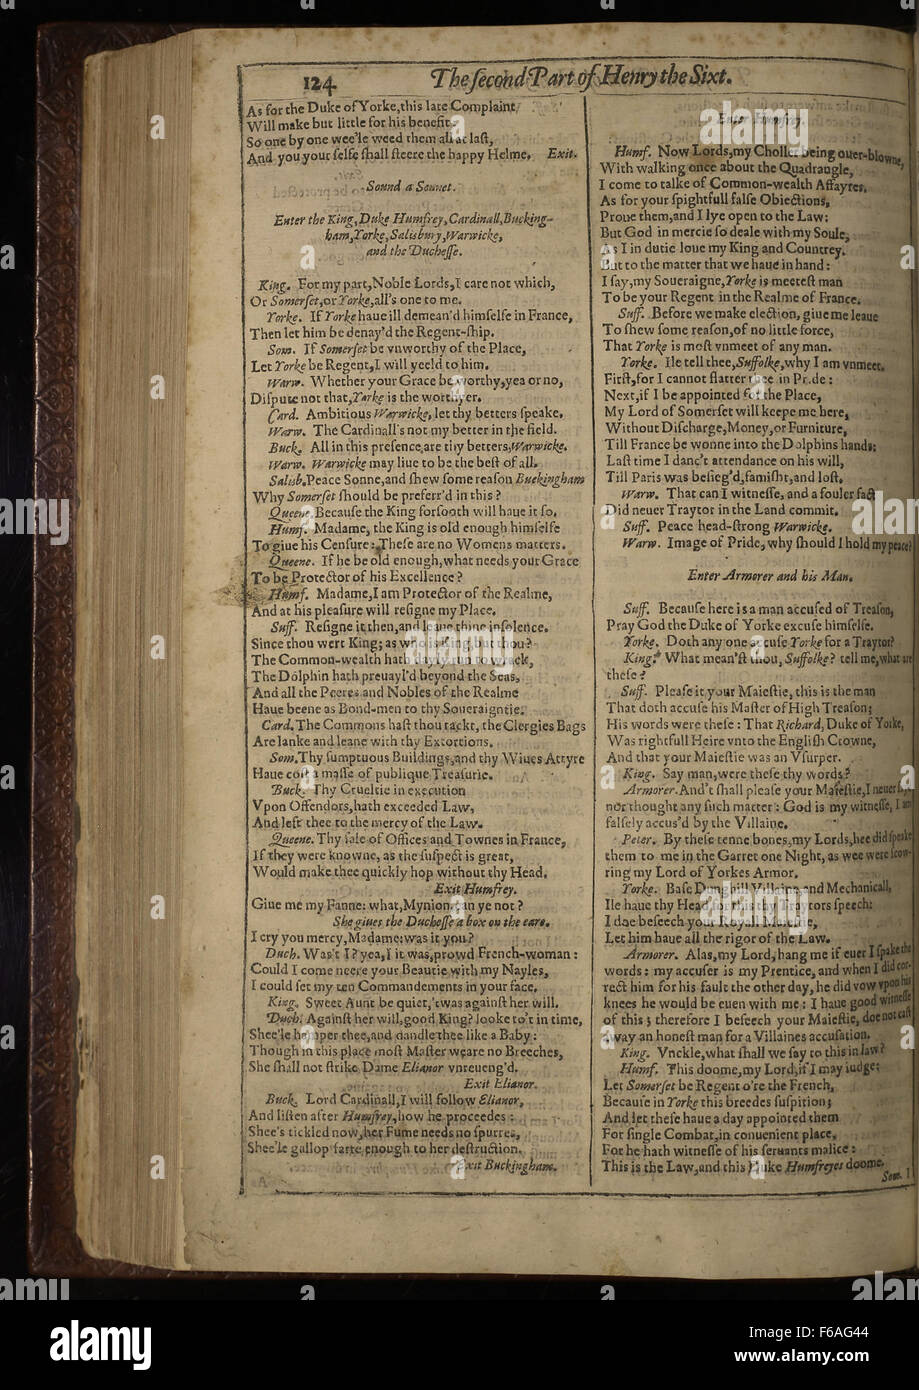 124 The ſecond Part of Henry the Sixt.
As for the Duke of Yorke, this late Complaint
Will make but little for his benefit:
So one by one wee'le weed them all at laſt,
And you your ſelfe ſhall ſteere the happy Helme. Exit.
Sound a Sennet.
Enter the King, Duke Humfrey, Cardinall, Bucking-
ham, Yorke, Salisbury, Warwicke,
and the Ducheſſe.
King. For my part, Noble Lords, I care not which,
Or Somerſet, or Yorke, all's one to me.
Yorke. If Yorke haue ill demean'd himſelfe in France,
Then let him be denay'd the Regent-ſhip.
Som. If Somerſet be vnworthy of the Place,
Let Yorke be Regent, I will yeeld to him.
Warw. Whether your Grace be worthy, yea or no,
Diſpute not that, Yorke is the worthyer.
Card. Ambitious Warwicke, let thy betters ſpeake.
Warw. The Cardinall's not my better in the field.
Buck. All in this preſence are thy betters, Warwicke.
Warw. Warwicke may liue to be the beſt of all.
Salisb. Peace Sonne, and ſhew ſome reaſon Buckingham
Why Somerſet ſhould be preferr'd in this?
Queene. Becauſe the King forſooth will haue it ſo.
Humf. Madame, the King is old enough himſelfe
To giue his Cenſure: Theſe are no Womens matters.
Queene. If he be old enough, what needs your Grace
To be Protector of his Excellence?
Humf. Madame, I am Protector of the Realme,
And at his pleaſure will reſigne my Place.
Suff. Reſigne it then, and leaue thine inſolence.
Since thou wert King; as who is King, but thou?
The Common-wealth hath dayly run to wrack,
The Dolphin hath preuayl'd beyond the Seas,
And all the Peeres and Nobles of the Realme
Haue beene as Bond-men to thy Soueraigntie.
Card. The Commons haſt thou rackt, the Clergies Bags
Are lanke and leane with thy Extortions.
Som. Thy ſumptuous Buildings, and thy Wiues Attyre
Haue coſt a maſſe of publique Treaſurie.
Buck. Thy Crueltie in execution
Vpon Offendors, hath exceeded Law,
And left thee to the mercy of the Law.
Queene. Thy ſale of Offices and Townes in France,
If they were knowne, as the ſuſpect is great,
Would make thee quickly hop without thy Head.
Exit Humfrey.
Giue me my Fanne: what, Mynion, can ye not?
She giues the Ducheſſe a box on the eare.
I cry you mercy, Madame: was it you?
Duch. Was't I? yea, I it was, prowd French-woman:
Could I come neere your Beautie with my Nayles,
I could ſet my ten Commandements in your face.
King. Sweet Aunt be quiet, 'twas againſt her will.
Duch. Againſt her will, good King? looke to't in time,
Shee'le hamper thee, and dandle thee like a Baby:
Though in this place moſt Maſter weare no Breeches,
She ſhall not ſtrike Dame Elianor vnreueng'd.
Exit Elianor.
Buck. Lord Cardinall, I will follow Elianor,
And liſten after Humfrey, how he proceedes:
Shee's tickled now, her Fume needs no ſpurres,
Shee'le gallop farre enough to her deſtruction.
Exit Buckingham.
Enter Humfrey.
Humf. Now Lords, my Choller being ouer-blowne,
With walking once about the Quadrangle,
I come to talke of Common-wealth Affayres.
As for your ſpightfull falſe Obiections,
Proue them, and I lye open to the Law:
But God in mercie ſo deale with my Soule,
As I in dutie loue my King and Countrey.
But to the matter that we haue in hand:
I ſay, my Soueraigne, Yorke is meeteſt man
To be your Regent in the Realme of France.
Suff. Before we make election, giue me leaue
To ſhew ſome reaſon, of no little force,
That Yorke is moſt vnmeet of any man.
Yorke. Ile tell thee, Suffolke, why I am vnmeet.
Firſt, for I cannot flatter thee in Pride:
Next, if I be appointed for the Place,
My Lord of Somerſet will keepe me here,
Without Diſcharge, Money, or Furniture,
Till France be wonne into the Dolphins hands:
Laſt time I danc't attendance on his will,
Till Paris was beſieg'd, famiſht, and loſt.
Warw. That can I witneſſe, and a fouler fact
Did neuer Traytor in the Land commit.
Suff. Peace head-ſtrong Warwicke.
Warw. Image of Pride, why ſhould I hold my peace?
Enter Armorer and his Man.
Suff. Becauſe here is a man accuſed of Treaſon,
Pray God the Duke of Yorke excuſe himſelfe.
Yorke. Doth any one accuſe Yorke for a Traytor?
King. What mean'ſt thou, Suffolke? tell me, what are
theſe?
Suff. Pleaſe it your Maieſtie, this is the man
That doth accuſe his Maſter of High Treaſon;
His words were theſe: That Richard, Duke of Yorke,
Was rightfull Heire vnto the Engliſh Crowne,
And that your Maieſtie was an Vſurper.
King. Say man, were theſe thy words?
Armorer. And't ſhall pleaſe your Maieſtie, I neuer ſayd
nor thought any ſuch matter: God is my witneſſe, I am
falſely accus'd by the Villaine.
Peter. By theſe tenne bones, my Lords, hee did ſpeake
them to me in the Garret one Night, as wee were ſcow-
ring my Lord of Yorkes Armor.
Yorke. Baſe Dunghill Villaine, and Mechanicall,
Ile haue thy Head for this thy Traytors ſpeech:
I doe beſeech your Royall Maieſtie,
Let him haue all the rigor of the Law.
Armorer. Alas, my Lord, hang me if euer I ſpake the
words: my accuſer is my Prentice, and when I did cor-
rect him for his fault the other day, he did vow vpon his
knees he would be euen with me: I haue good witneſſe
of this; therefore I beſeech your Maieſtie, doe not caſt
away an honeſt man for a Villaines accuſation.
King. Vnckle, what ſhall we ſay to this in law?
Humf. This doome, my Lord, if I may iudge:
Let Somerſet be Regent o're the French,
Becauſe in Yorke this breedes ſuſpition;
And let theſe haue a day appointed them
For ſingle Combat, in conuenient place,
For he hath witneſſe of his ſeruants malice:
This is the Law, and this Duke Humfreyes doome.
Som. I
alamy
alamy
Image ID: F6AG44
www.alamy.com